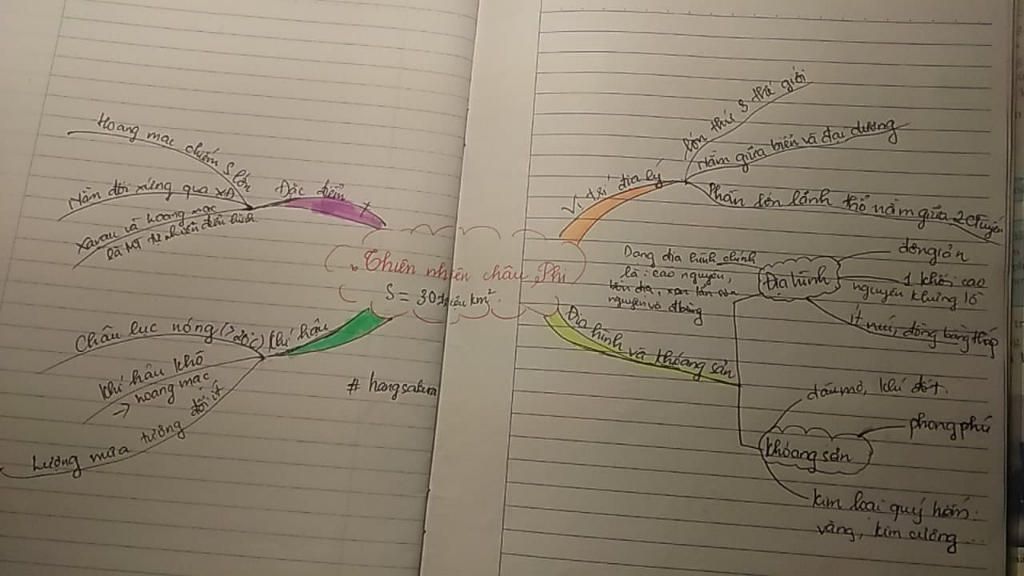 Thiên nhiên châu Phi
S = 30 triệu km²
Vị trí địa lý
lớn thứ 3 thế giới
Nằm giữa biển và đại dương
Phần lớn lãnh thổ nằm giữa 2 chí tuyến
Địa hình và khoáng sản
Địa hình
Dạng địa hình chính
là: cao nguyên,
bồn địa, sơn
nguyên và đồng
đơn giản
1 khối cao
nguyên khổng lồ
ít núi, đồng bằng thấp
Khoáng sản
dầu mỏ, khí đốt
phong phú
kim loại quý hiếm:
vàng, kim cương...
Đặc điểm
Hoang mạc chiếm S lớn
Nằm đối xứng qua xđ
Xavan và hoang mạc
là MT tự nhiên điển hình
Khí hậu
Châu lục nóng (>20°C)
Khí hậu khô
→ hoang mạc
Lượng mưa tương đối ít
# hangsakura